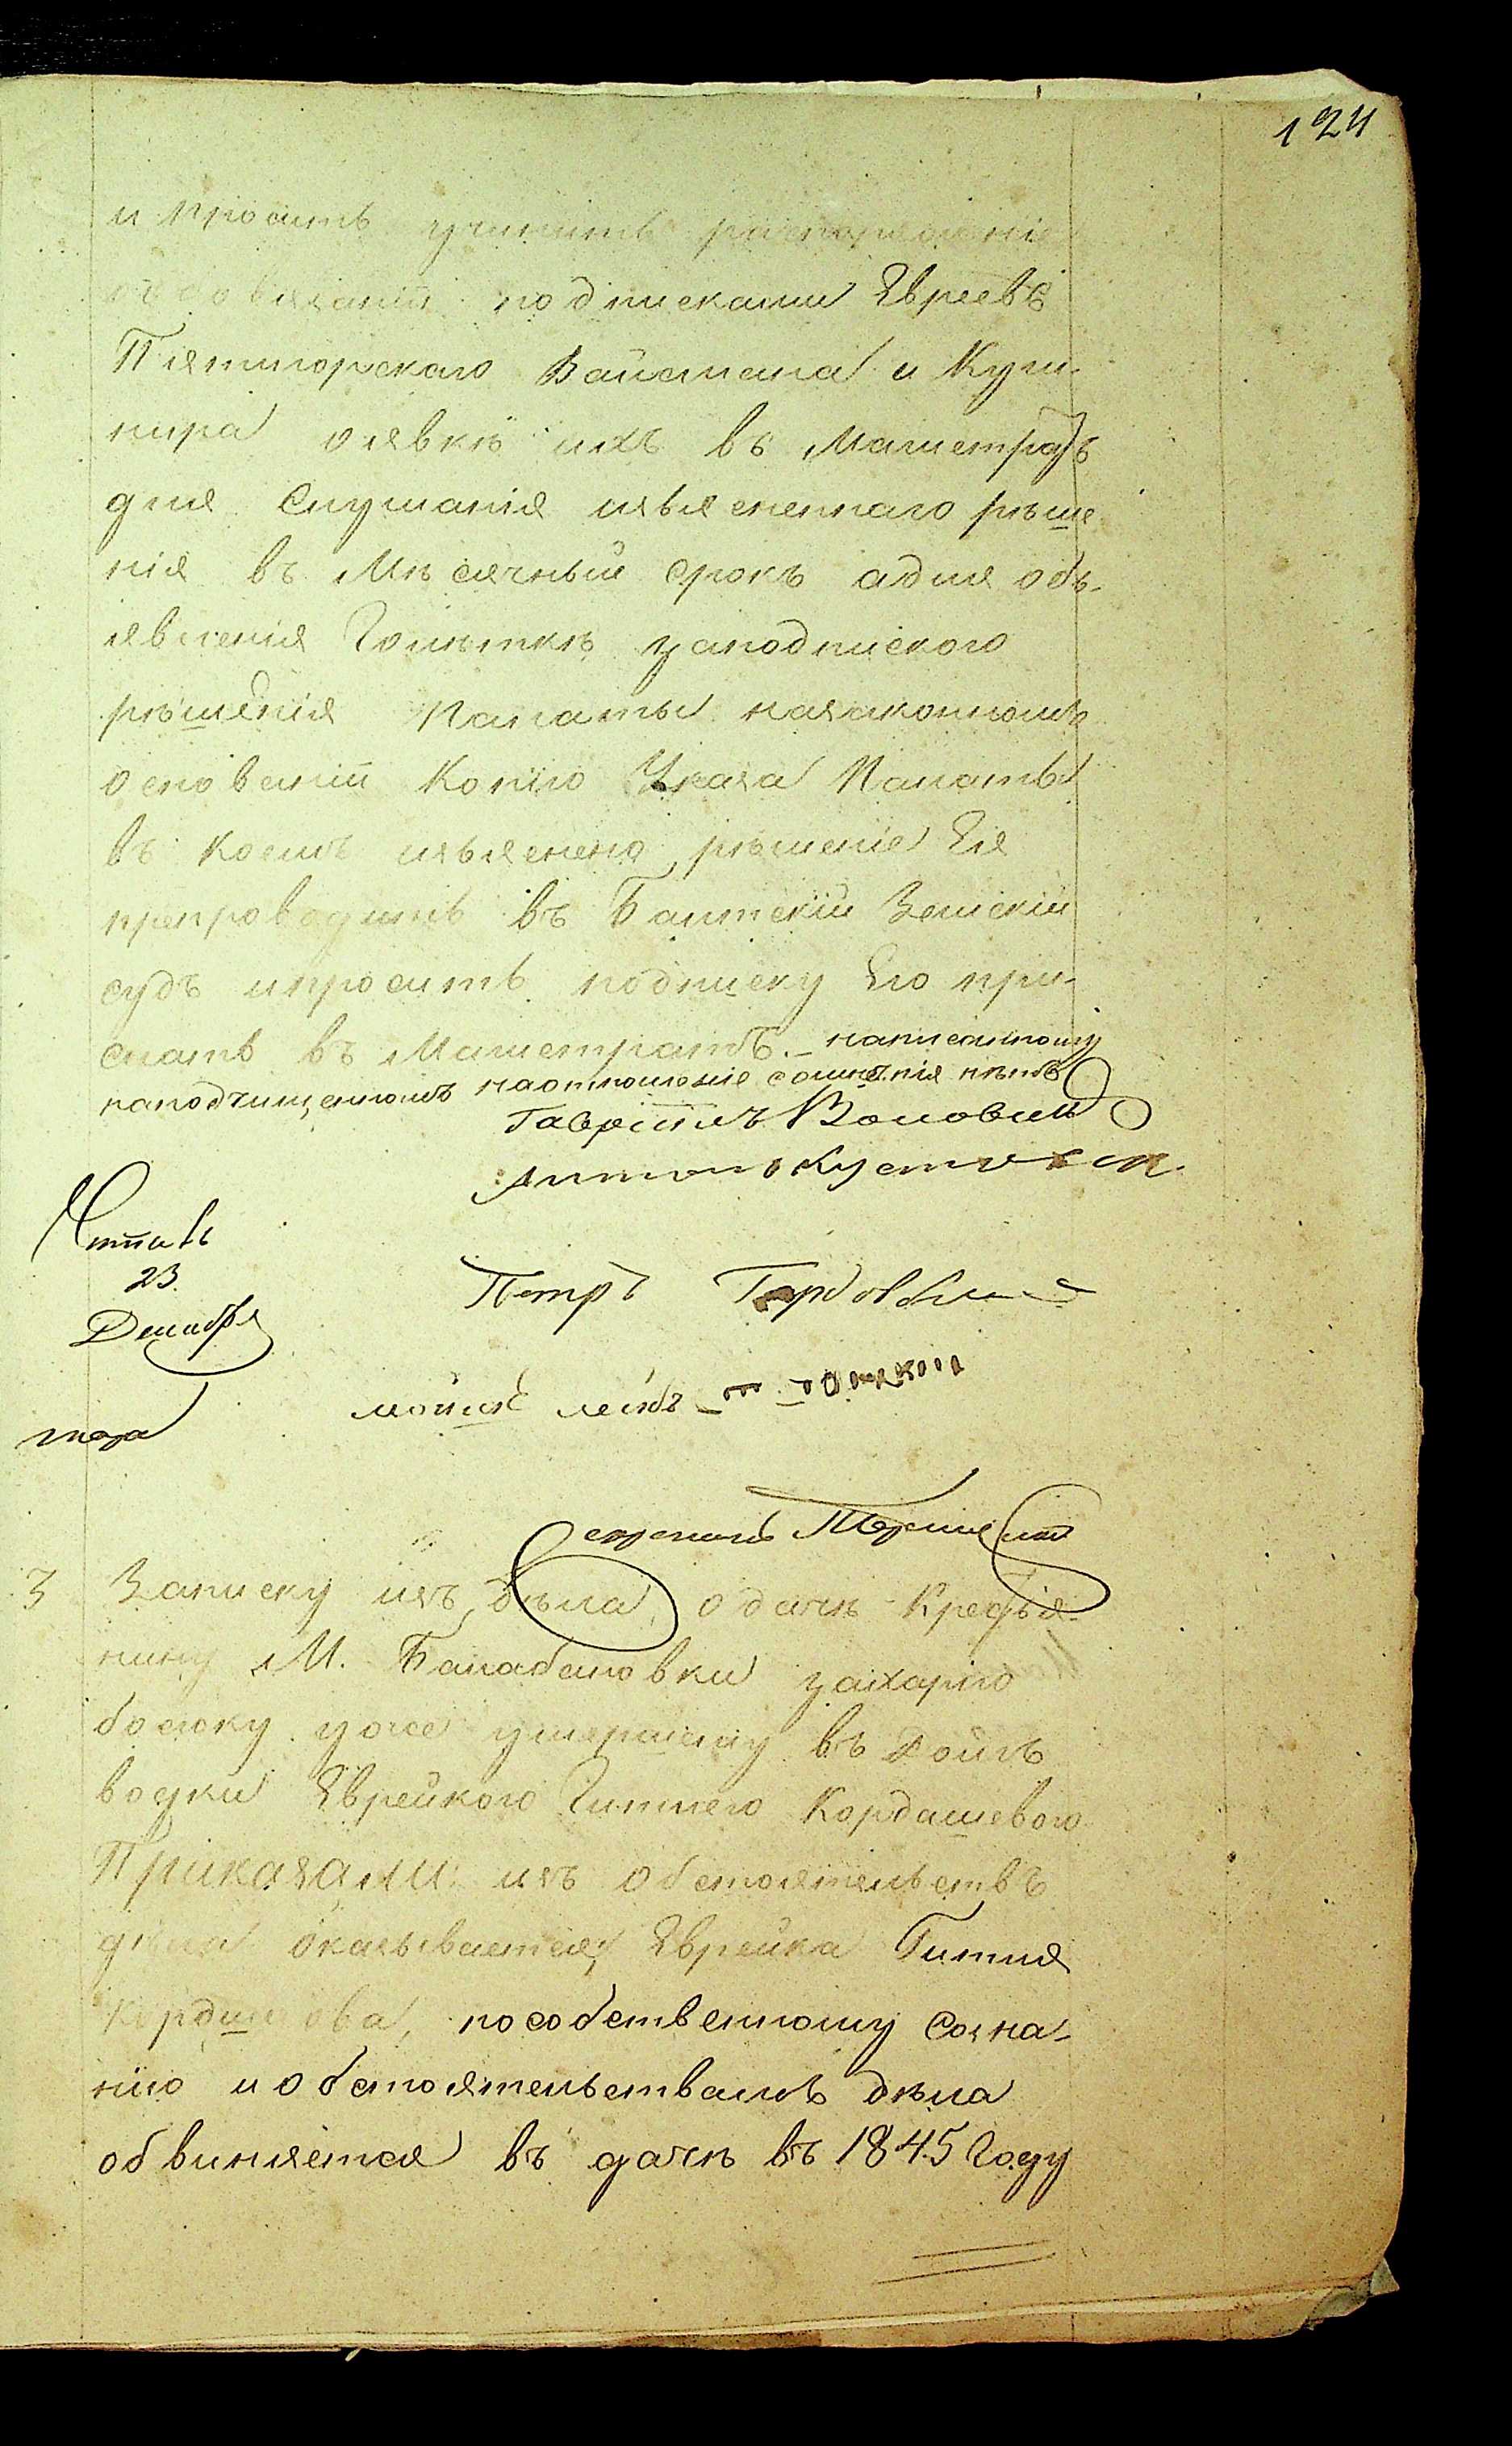 124
и просить учинить распоряженіе
объ обязаніи подписками Евреевъ
Пятигорскаго Вайсмана и Куш-
нира оявкѣ ихъ въ Магистратъ
для Слушанія изъясненнаго рѣше
нія въ Мѣсячный срокъ адля объ-
явленія Гольткѣ заподпискою
рѣшенія Палаты назаконномъ
основаніи Копію Указа Палаты
въ коемъ изъяснено рѣшеніе Ея
препроводить въ Балтскій Земскій
судъ ипросить подписку Его при-
слать въ Магистратъ. – написанному
наподчищенномъ
Гавріилъ
Антонъ
Петръ
23
Декабря
года
Мойше лейбъ
Секретарь
3 Записку изъ дѣла, одачѣ Крестья-
нину М. Балабановки Захарію
божку уже умершему въ долгъ
водки Еврейкою Гитлею Кордашевою
Приказали: изъ обстоятельствъ
дѣла оказывается, Еврейка Гитля
Кордашова, пособственному Созна-
нію и обстоятельствамъ дѣла
обвиняется въ дачѣ въ 1845 Году